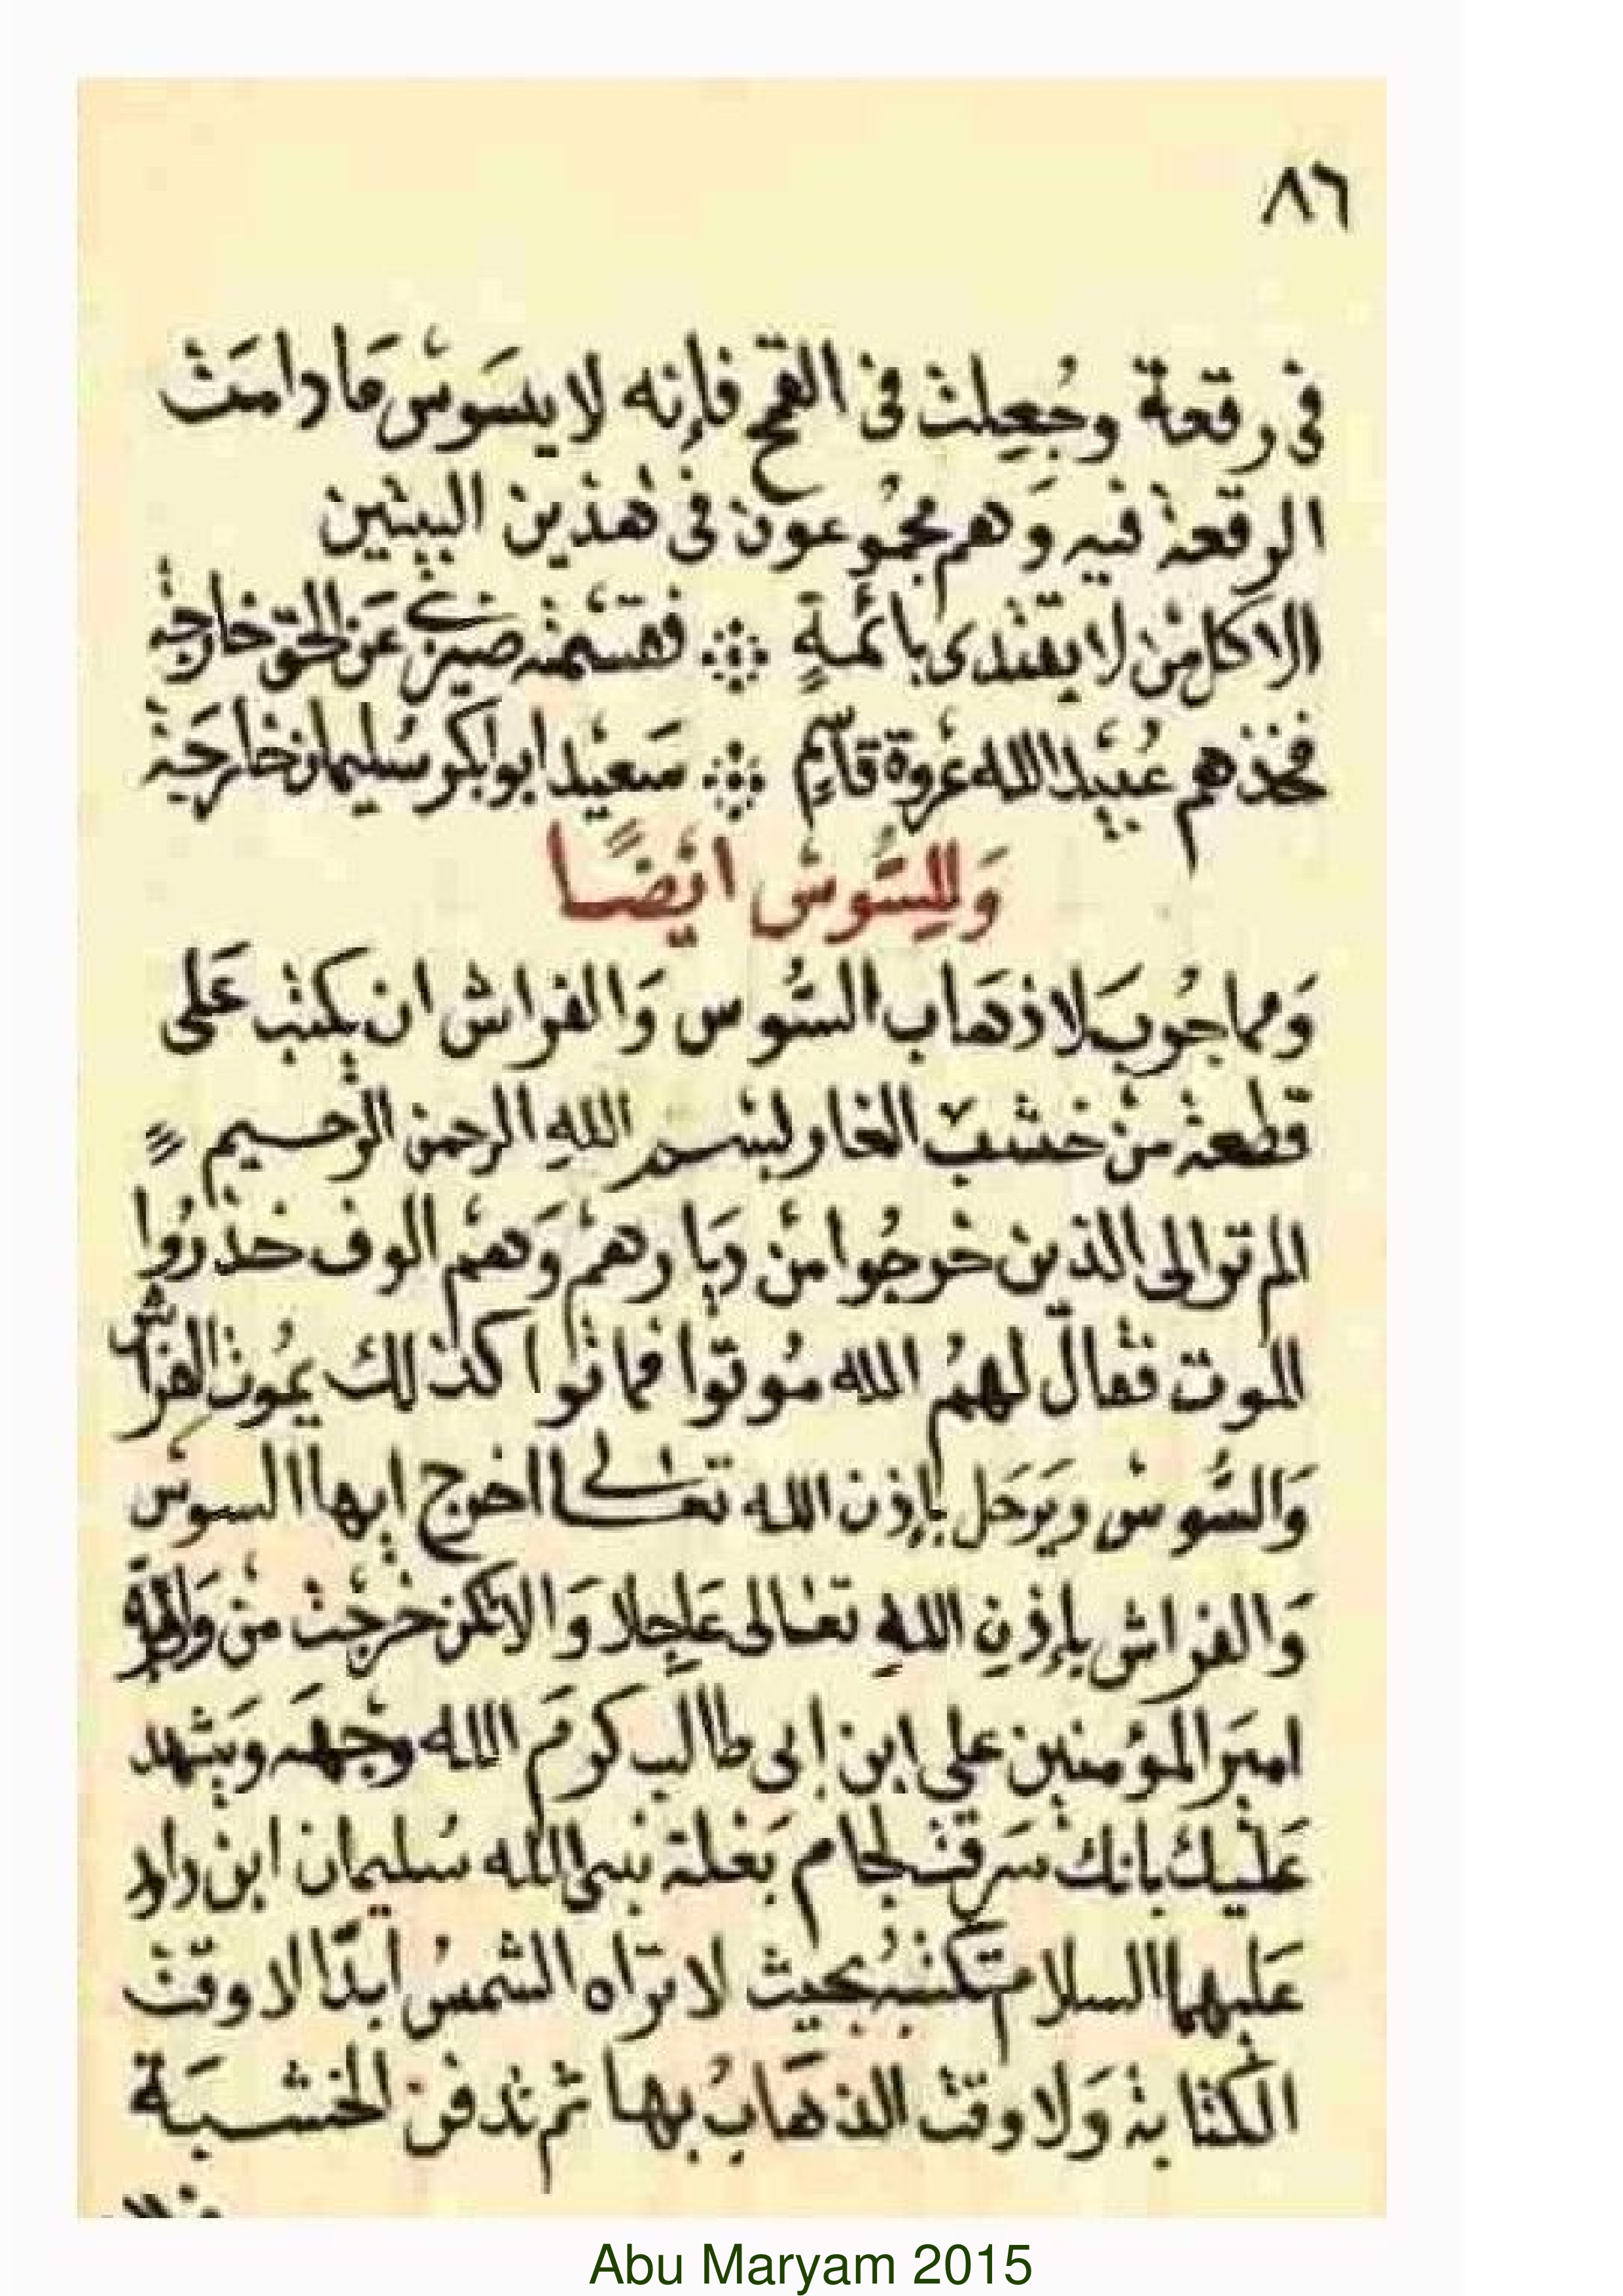 ٨٦
فى رقعة وجُعِلت فى القمح فإنه لا يسَوسْ مَا دامَت
الرقعة فيه وَهم مجمُوعون فى هذين البيتين
الاكل من لا يقتدى بائمةٍ فقسْمته ضيزى عَن الحق خارجة
فخذهم عُبيد الله عُروة قاسِم سَعيْد ابو بكر سُليمان خارجَة
وَللِسّوسْ ايْضًا
وَمما جُرب لاذهَاب السُّوس وَالفراش ان يكتب عَلى
قطعة منْ خشب الغار بسْم اللهِ الرحمن الرحيم
الم تر الى الذين خرجُوا منْ ديَارهمْ وَهمْ الوف حذرُوا
الموت فقال لهمُ الله مُوتوا فماتوا كذلك يمُوت الفراش
وَالسُّوسْ ويَرحَل بإذن الله تعالى اخرج ايها السوسْ
وَالفراش بإذنِ اللهِ تعَالى عَاجِلا وَالا تكن خرجْت منْ وَلاية
اميَر المؤمنين على ابن ابى طالب كرمَ الله وجْهَه ويَشهد
عَليْك بانك سَرقت لجام بَغلة نبى الله سُليمان ابن داود
عَليهما السلام تكتبُه بحيث لا تراه الشمسُ ابدًا لا وقت
الكتابة وَلا وقت الذهَابُ بها ثم تدفن الخشبَة
Abu Maryam 2015